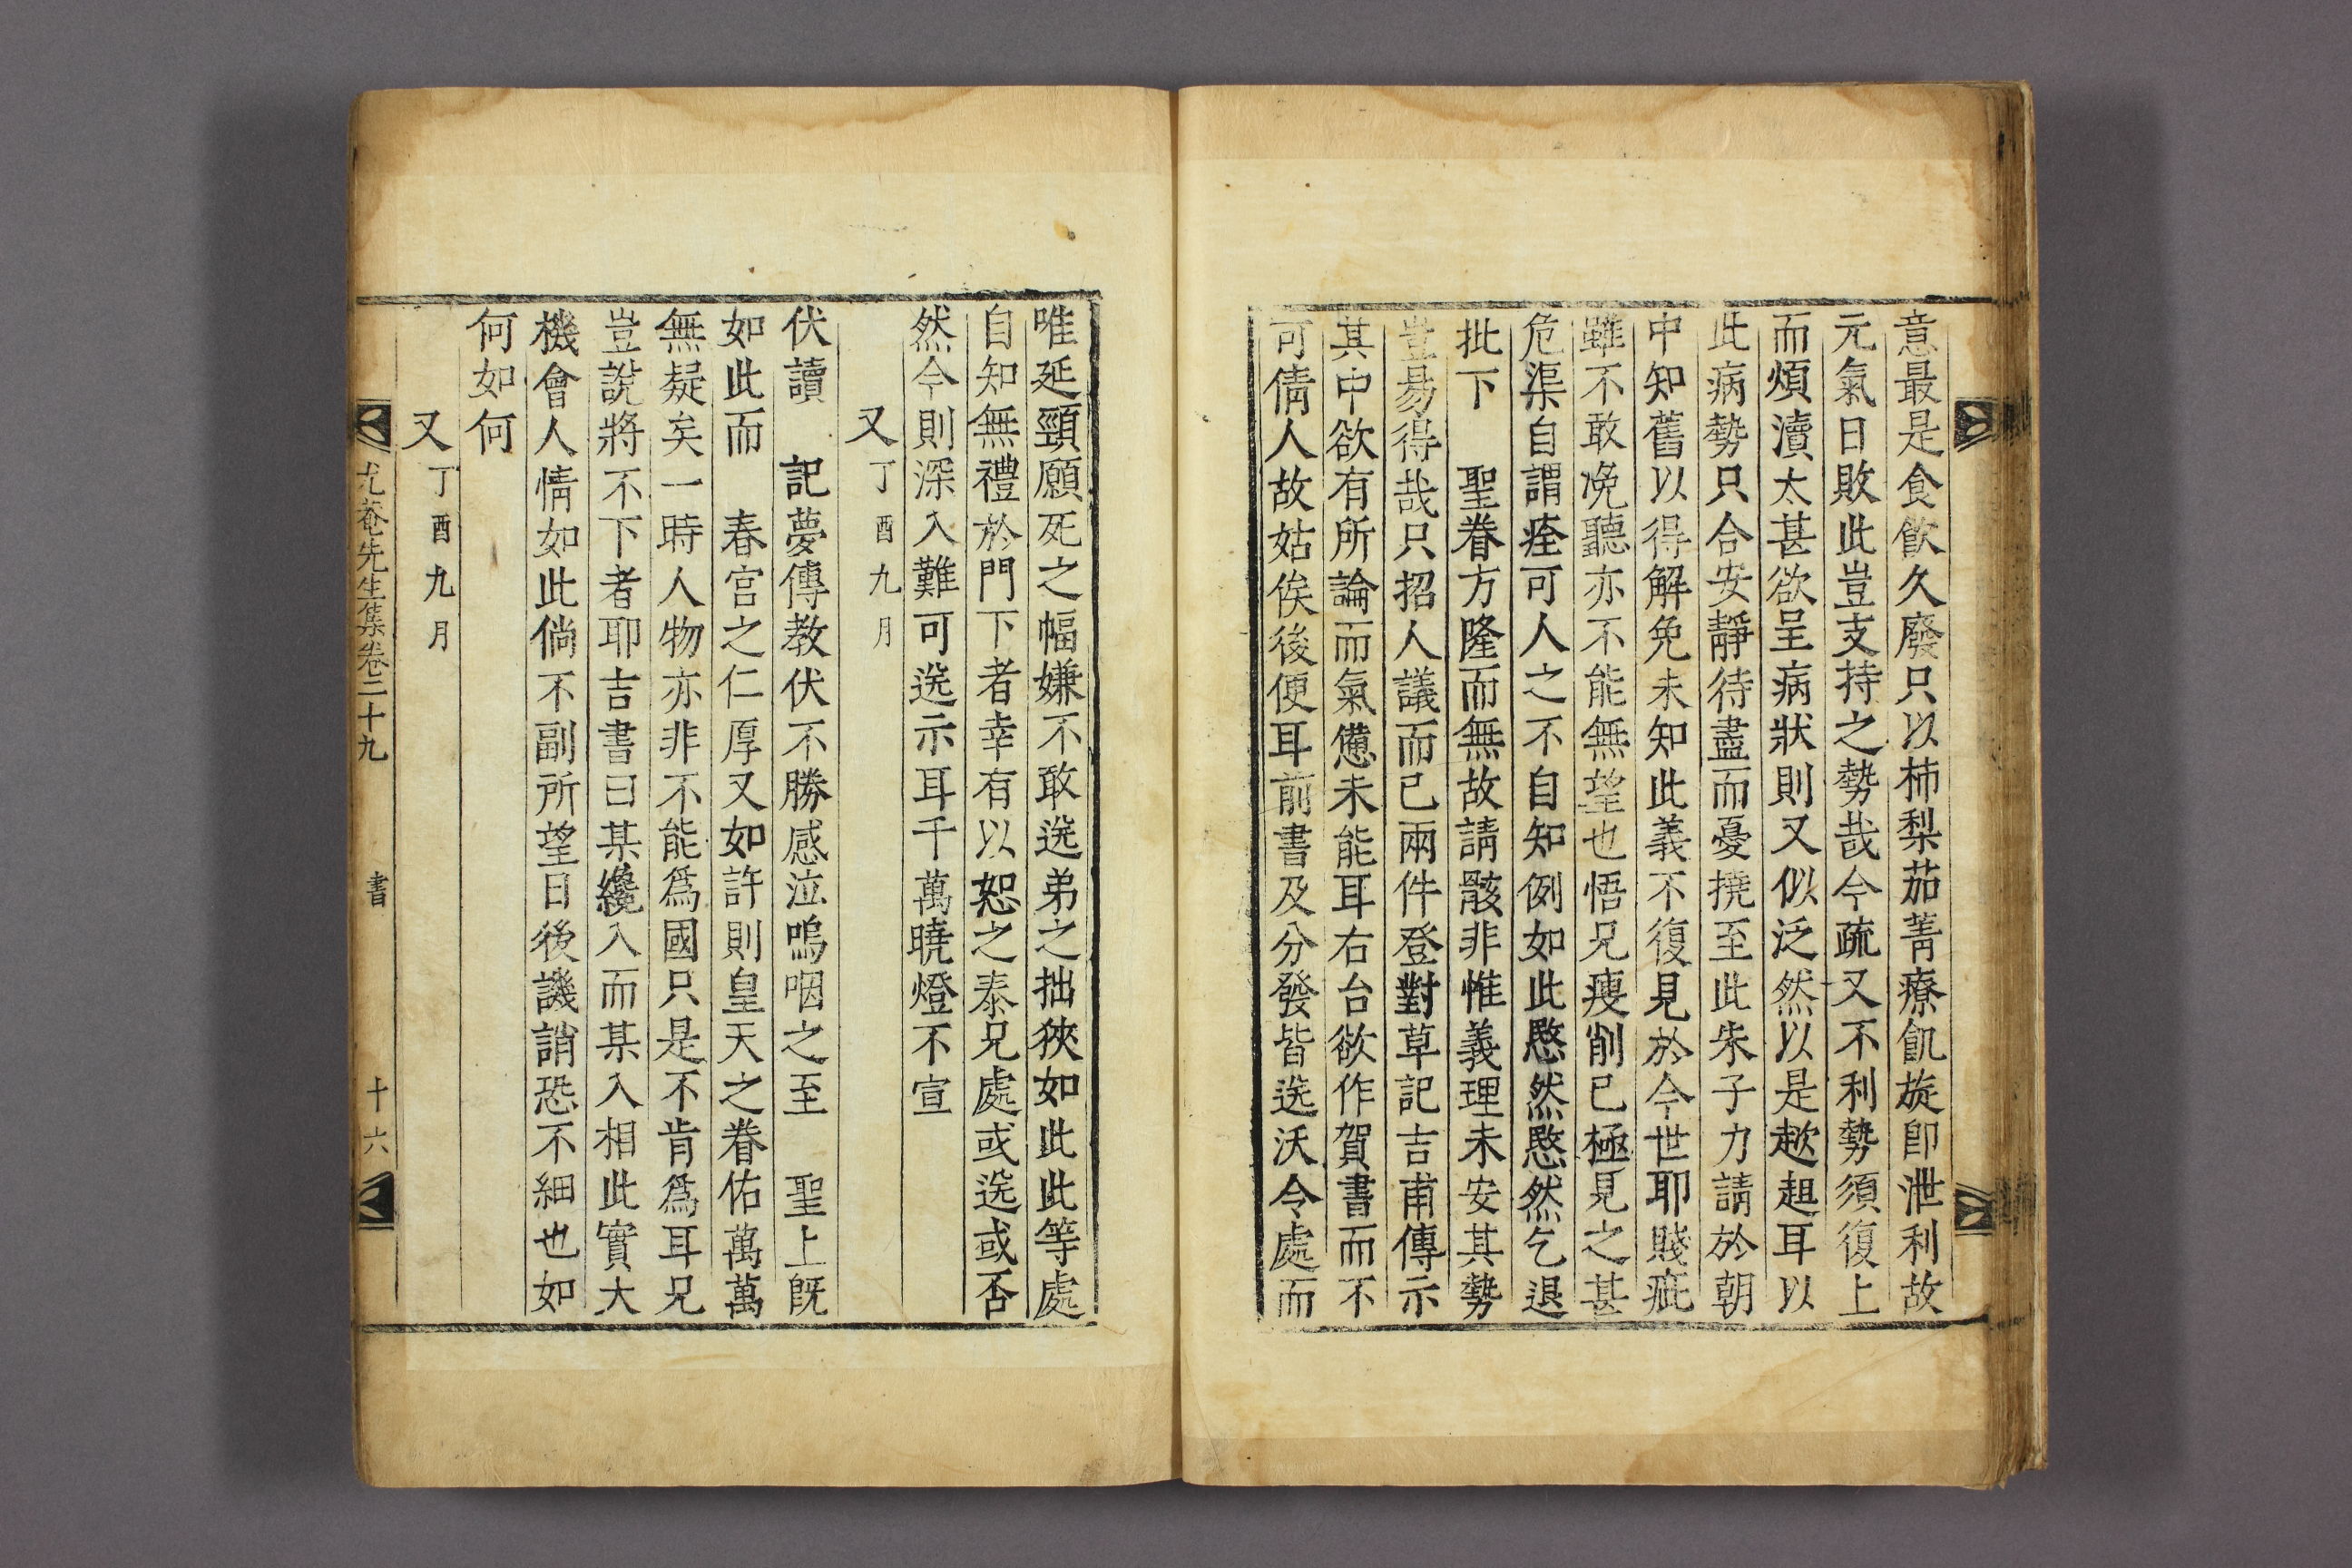 意最是食飮久廢只以柿梨茄菁療飢旋卽泄利故
元氣日敗此豈支持之勢哉今疏又不利勢須復上
而煩瀆太甚欲呈病狀則又似泛然以是趑趄耳以
此病勢只合安靜待盡而憂撓至此朱子力請於朝
中知舊以得解免未知此義不復見於今世耶賤疵
雖不敢浼聽亦不能無望也悟兄瘦削已極見之甚
危渠自謂痊可人之不自知例如此愍然愍然乞退
批下　聖眷方隆而無故請骸非惟義理未安其勢
豈易得哉只招人議而已兩件登對草記吉甫傳示
其中欲有所論而氣憊未能耳右台欲作賀書而不
可倩人故姑俟後便耳前書及分發皆送沃令處而
唯延頸願死之幅嫌不敢送弟之拙狹如此此等處
自知無禮於門下者幸有以恕之泰兄處或送或否
然今則深入難可送示耳千萬曉燈不宣
又丁酉九月
伏讀　記夢傳教伏不勝感泣嗚咽之至　聖上旣
如此而　春宮之仁厚又如許則皇天之眷佑萬萬
無疑矣一時人物亦非不能爲國只是不肯爲耳兄
豈說將不下者耶吉書曰某纔入而某入相此實大
機會人情如此倘不副所望日後譏誚恐不細也如
何如何
又丁酉九月
尤菴先生集卷二十九　書　十六